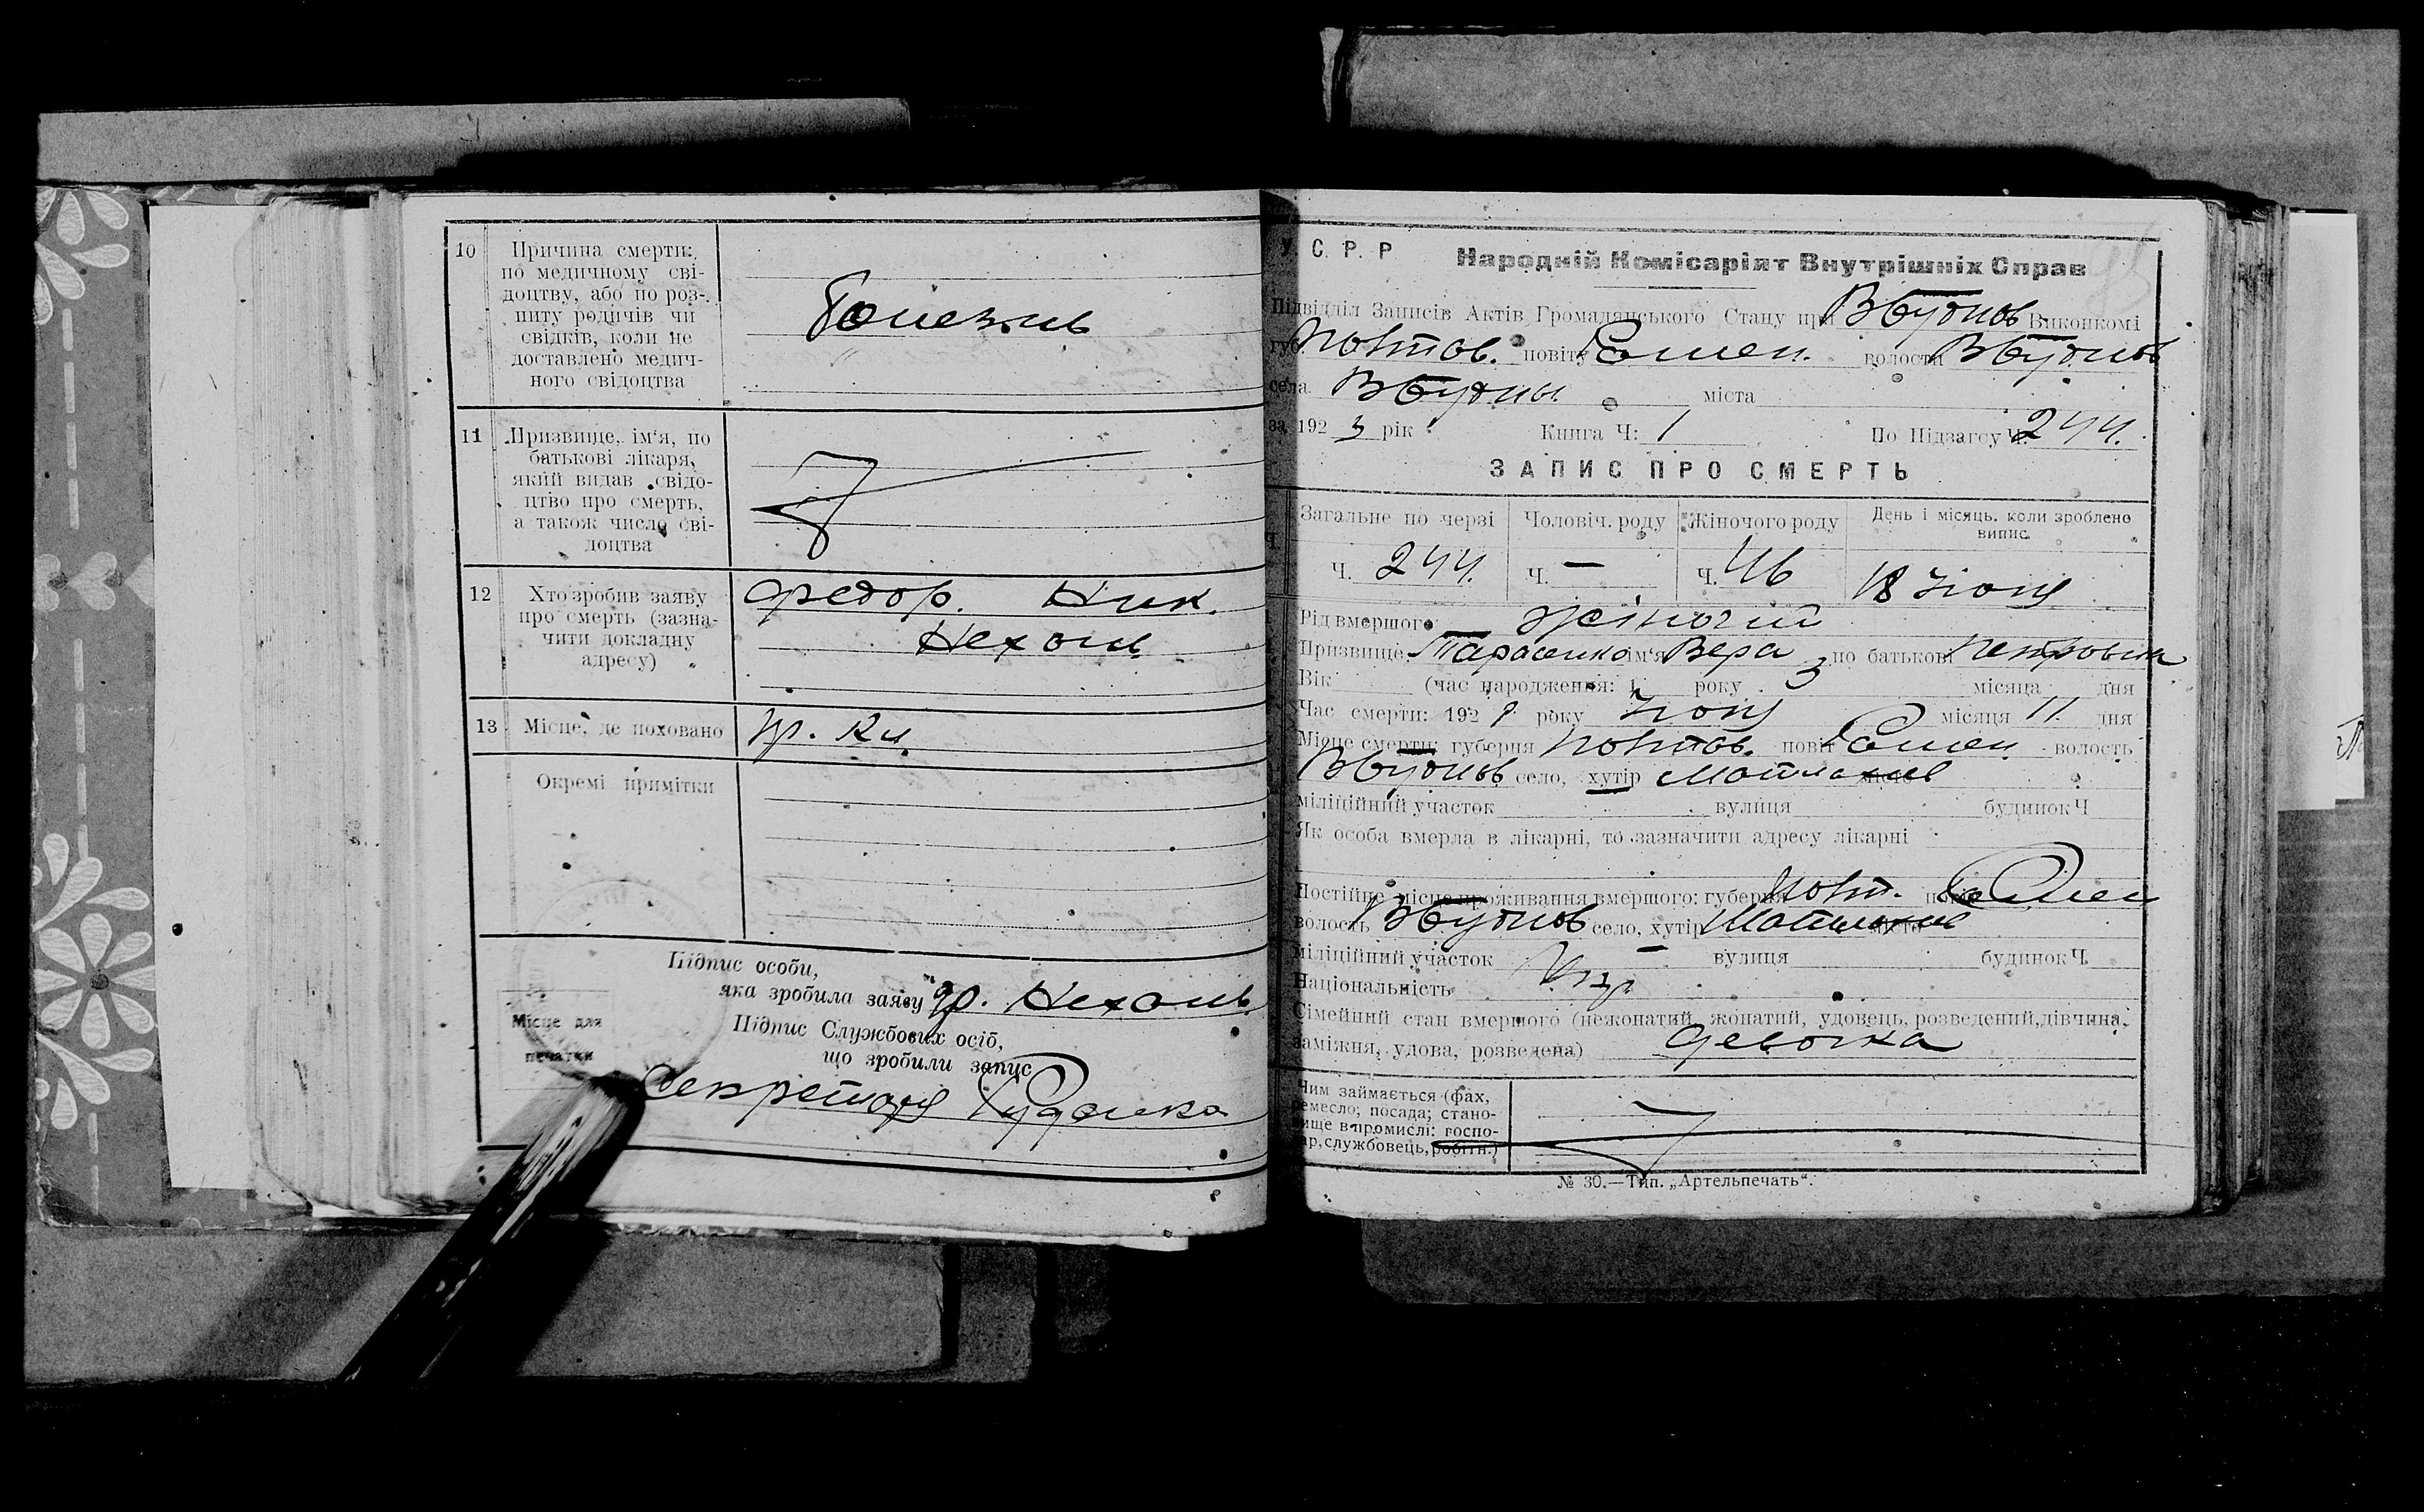 10
Причина смерти:
по медичному сві-
доцтву, або по роз-
питу родичів чи
свідків, коли не
доставлено медич-
ного свідоцтва
11
Призвище, ім'я, по
батькові лікаря,
який видав свідо-
цтво про смерть,
а також число сві-
доцтва
12
Хто зробив заяву
про смерть (зазна-
чити докладну
адресу)
Федор. Ник.
Нехонь
13
Місце, де поховано
гр. кл.
Окремі примітки
Підпис особи,
яка зробила заяву
Нехонь
Підпис Службових осіб,
що зробили запис
Місце для
печатки
Секретарь
У С. Р. Р
Народній Комісаріят Внутрішніх Справ
Підвідділ Записів Актів Громадянського Стану при Виконкомі
губ. Полтов. повіту Ромен. волости
села міста
за 1923 рік Книга Ч: 1 По Підзагсу Ч. 244.
ЗАПИС ПРО СМЕРТЬ
Загальне по черзі Чоловіч. роду Жіночого роду День і місяць, коли зроблено
випис.
Ч. 244. Ч. — Ч. 18
Рід вмершого жіночій
Призвище, Тарасенко ім'я Вера по батькові Петровна
Вік (час народження: 1 року 3 місяця дня
Час смерти: 192 року місяця 11 дня
Місце смерти: губерня Полтов. повіт Ромен волость
село, хутір місто
міліційний участок вулиця будинок Ч
Як особа вмерла в лікарні, то зазначити адресу лікарні
Постійне місце проживання вмершого: губерня Полт. повіт Ромен
волость село, хутір місто
міліційний участок — вулиця будинок Ч.
Національність Укр
Сімейний стан вмершого (нежонатий, жонатий, удовець, розведений, дівчина,
заміжня, удова, розведена) девочка
Чим займається (фах,
ремесло; посада; стано-
вище в промислі: госпо-
дар, службовець, робітн.)
№ 30.—Тип. „Артельпечать".